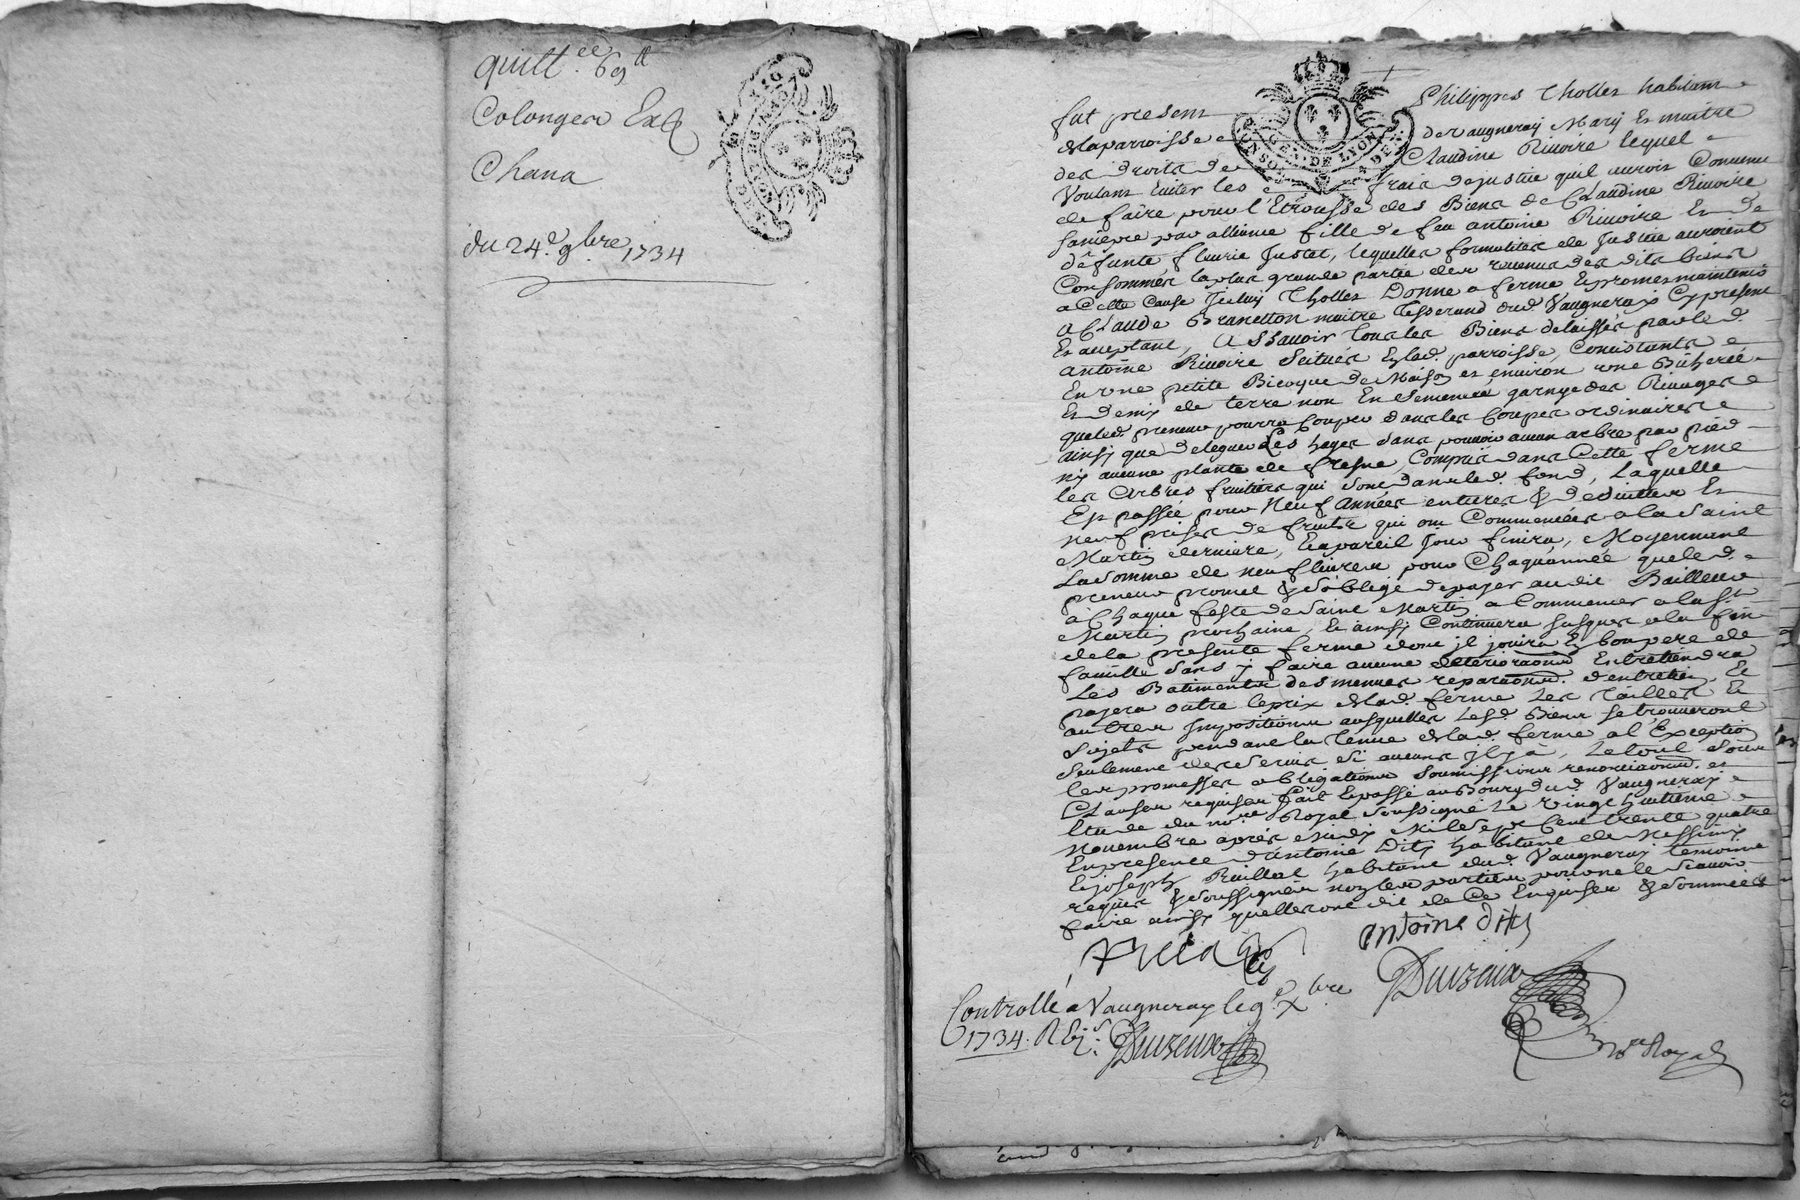 quitt.ce 69 tt
Colonges Ex
Chana
du 24.e 9bre 1734
GEN DE LYON
fut present Philippes Thollet habitant
de la parroisse de Vaugneray Mary Et maitre
des droits de Claudine Riuoire lequel
Voulant Euiter les frais de justice quil auroit Conuenu
de faire pour l'Etrousse des Biens de Claudine Riuoire
sa niepce par alliance fille de feu antoine Riuoire Et de
défunte fleurie Justet, lequelles formalités de Justice auroient
Consommés la plus grande partie des reuenus des dits biens
a Cette Cause Jceluy Thollet Donne a ferme Et promet maintenir
a Claude Branetton maitre Tisserand dud. Vaugneray Cy present
Et aceptant, a Sçauoir Tous les Biens delaissés par led.
antoine Riuoire Scitués En lad. parroisse, Consistants
En vne petite Bicoque de Maison et enuiron vne Bicherée
Et demy de terre non Ensemencé garnye des Riuages
que led. preneur pourra Couper dans les Coupes ordinaires
ainsy que de leguer Les hayes sans pouuoir aucun arbre par pied
ny aucune plante de fresne, Compris dans Cette ferme
les Arbres fruitiers qui sont dans led. fond, Laquelle
Est passée pour Neuf Années entieres & de suitte Et
neuf prises de fruits qui ont Commencées a la Saint
Martin derniere, Et a pareil Jour finira, Moyennant
La somme de neuf liures pour Chaque année que led.
preneur promet & s'oblige de payer audit Bailleur
à Chaque feste de Saint Martin a Commencer a la St
Martin prochaine, Et ainsy Continuera jusques a la fin
de la presente ferme dont jl jouira En bon pere de
famille sans y faire aucune déterioraons Entretiendra
Les Batiments des menues reparaons d'entretien, Et
payera outre le prix de lad. ferme Les Tailles Et
autres Jmpositions ausquelles lesd. Biens se trouueront
Sujets pendant la Tenue de lad. ferme a l'Exception
seulement des seruis si aucuns jl y a, Le tout sous
les promesses obligations soumissions renonciaons, et
Clauses requises fait Et passé au Bourg dud. Vaugneray
Etude du no.re Royal soussigné Le vingt huitieme
Nouembre apres Midy Mil sept Cent trente quatre
En presence d'antoine Dity habitant de Messimy
Et joseph Ruillat habitant dud. Vaugneray temoins
requis & soussignés non les parties pour ne le Scauoir
faire ainsy quelles ont dit de Ce Enquises & sommées
antoine dity
Duizaix
n.re Royal
Controllé a Vaugneray le 9.e Xbre
1734. R